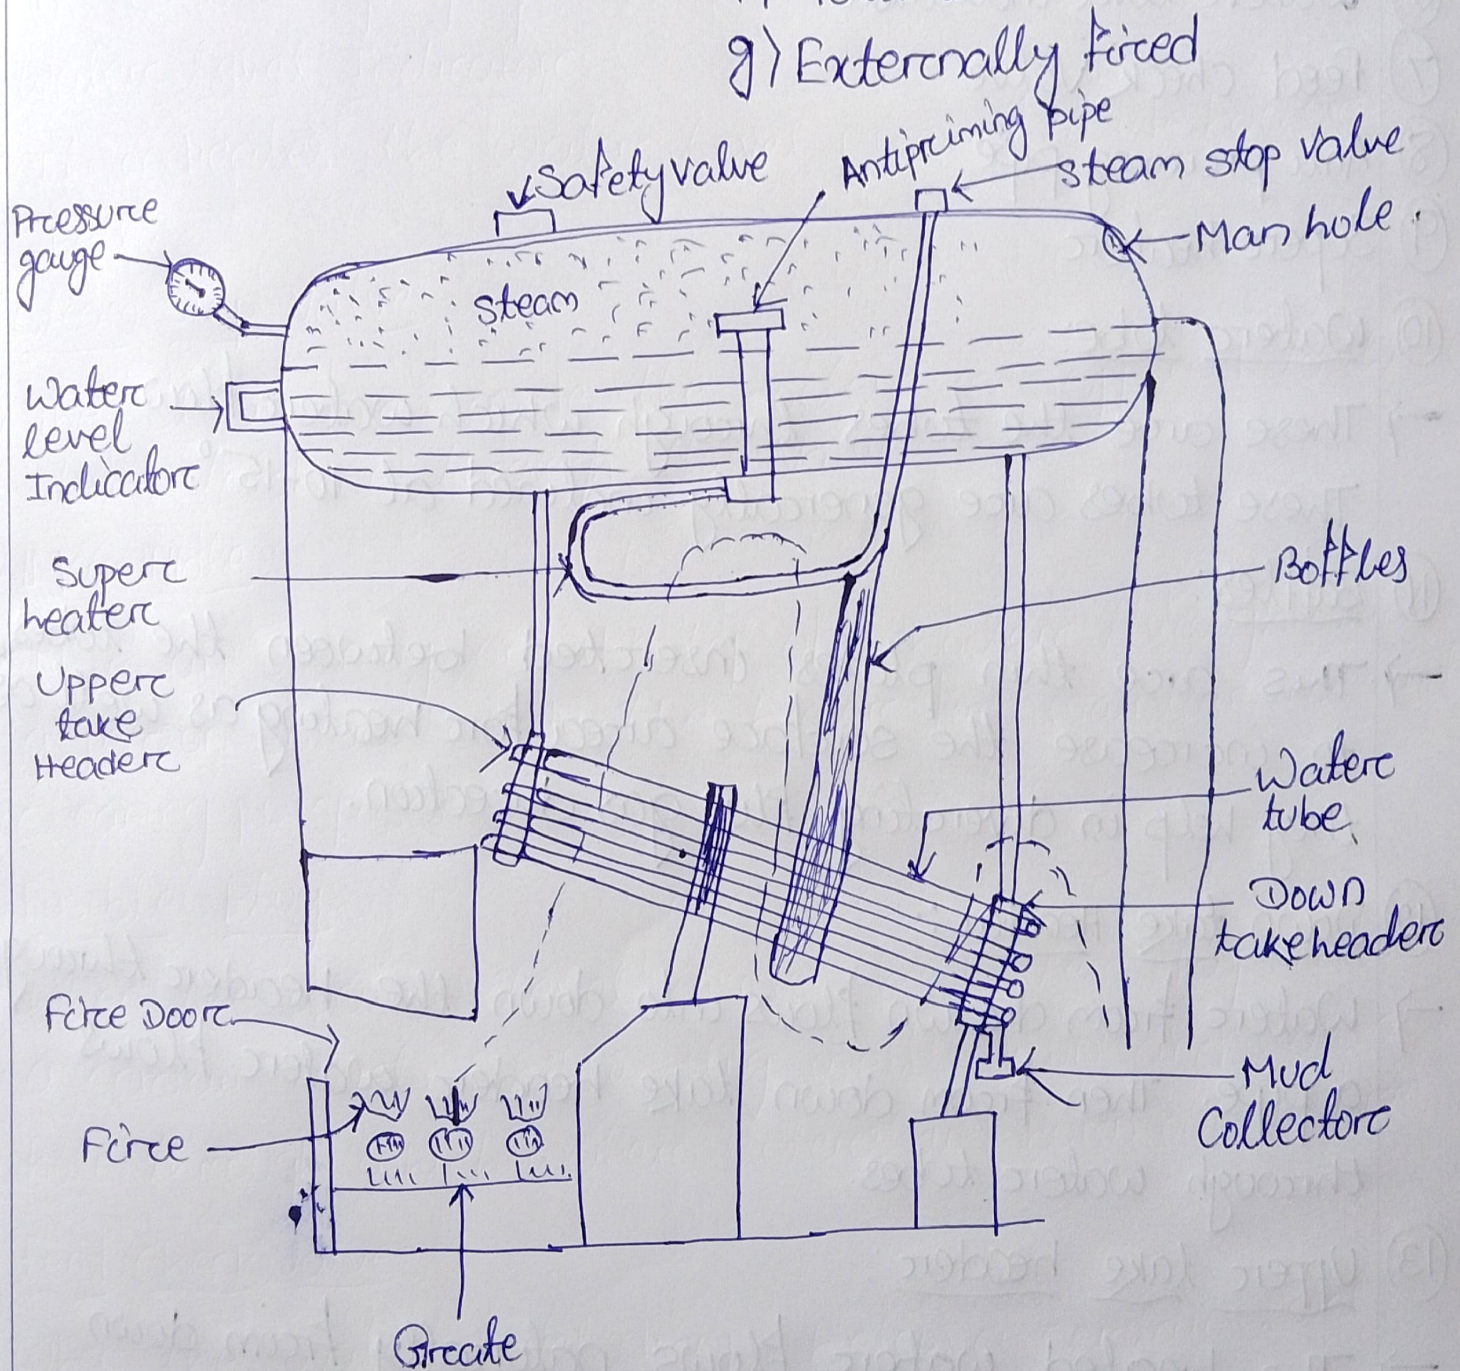 g) Externally fired
Safety valve
Antipriming pipe
steam stop valve
Pressure
gauge
Man hole
steam
Water
level
Indicator
Super
heater
Baffles
Upper
take
Header
Water
tube
Down
take header
Fire Door
Mud
Collector
Fire
Greate